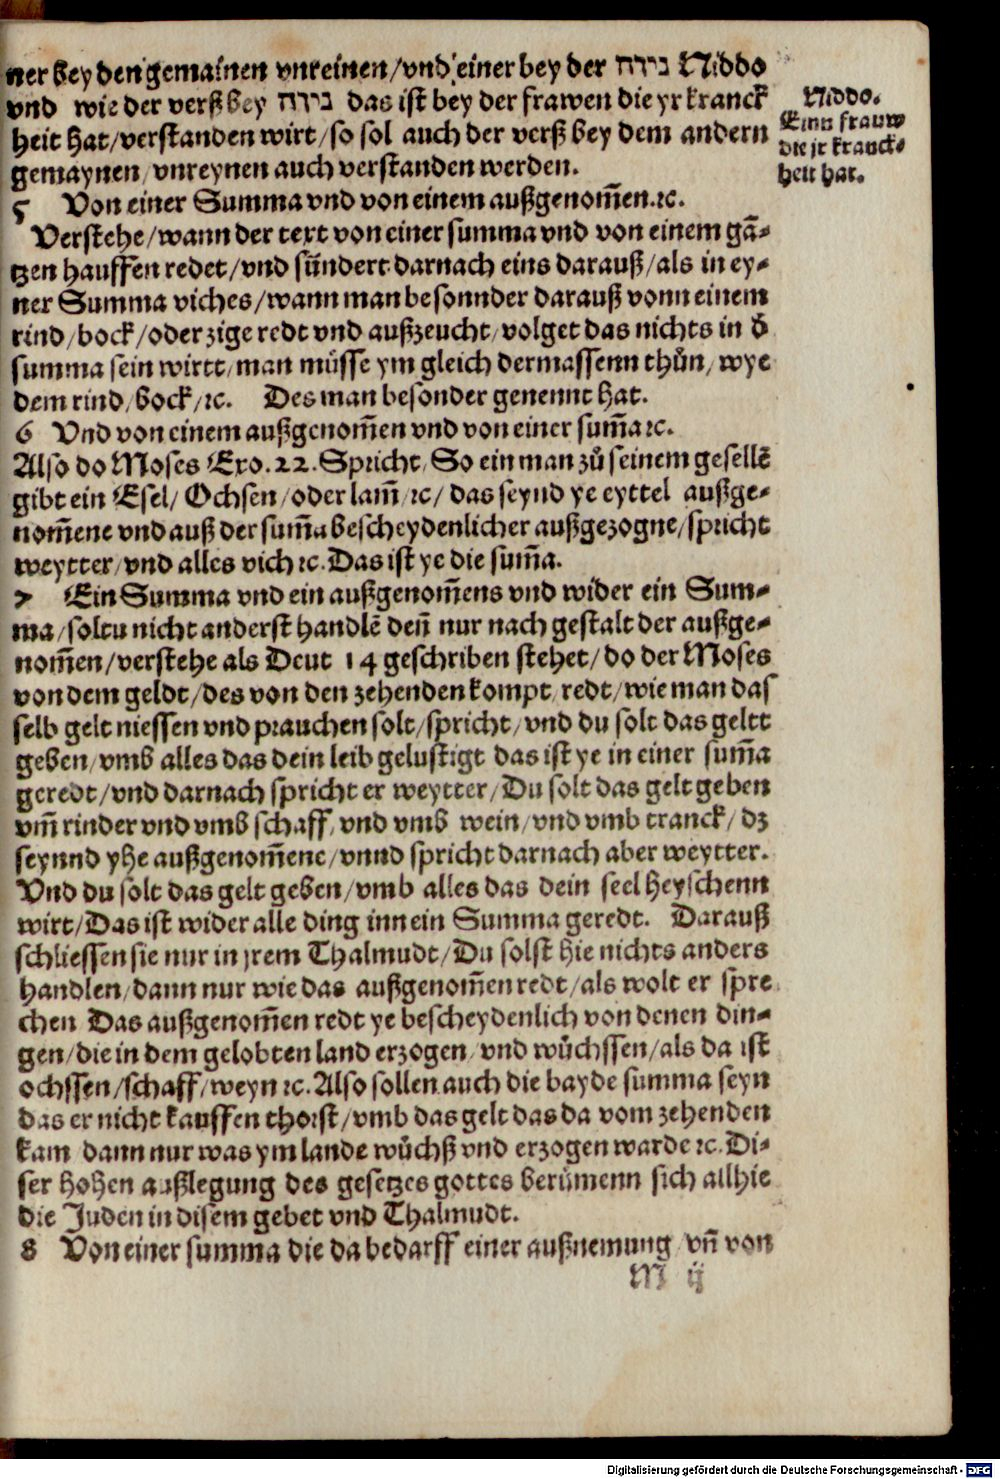 ner bey den gemainen vnreinen/vnd einer bey der נידה Niddo
vnd wie der verß bey נידה das ist bey der frawen die yr kranck
heit hat/verstanden wirt/so sol auch der verß bey dem andern
gemaynen/vnreynen auch verstanden werden.
Niddo.
Einn frauw
die jr kranck-
heit hat.
5 Von einer Summa vnd von einem außgenom̄en.ꝛc.
Verstehe/wann der text von einer summa vnd von einem gā-
tzen hauffen redet/vnd sūndert darnach eins darauß/als in ey-
ner Summa viches/wann man besonnder darauß vonn einem
rind/bock/oder zige redt vnd außzeucht/volget das nichts in d̄
summa sein wirtt/man müsse ym gleich dermassenn thůn/wye
dem rind/bock/ꝛc. Des man besonder genennt hat.
6 Vnd von einem außgenom̄en vnd von einer sum̄a ꝛc.
Also do Moses Exo.22.Spricht/So ein man zů seinem gesellē
gibt ein Esel/Ochsen/oder lam̄/ꝛc/das seynd ye eyttel außge-
nom̄ene vnd auß der sum̄a bescheydenlicher außgezogne/spricht
weytter/vnd alles vich ꝛc.Das ist ye die sum̄a.
7 Ein Summa vnd ein außgenom̄ens vnd wider ein Sum-
ma/soltu nicht anderst handlē deñ nur nach gestalt der außge-
nom̄en/verstehe als Deut 14 geschriben stehet/do der Moses
von dem geldt/des von den zehenden kompt/redt/wie man das
selb gelt niessen vnd prauchen solt/spricht/vnd du solt das geltt
geben/vmb alles das dein leib gelustigt das ist ye in einer sum̄a
geredt/vnd darnach spricht er weytter/Du solt das gelt geben
vm̄ rinder vnd vmb schaff/vnd vmb wein/vnd vmb tranck/dz
seynnd yhe außgenom̄ene/vnnd spricht darnach aber weytter.
Vnd du solt das gelt geben/vmb alles das dein seel heyschenn
wirt/Das ist wider alle ding inn ein Summa geredt. Darauß
schliessen sie nur in jrem Thalmudt/Du solst hie nichts anders
handlen/dann nur wie das außgenom̄en redt/als wolt er spre
chen Das außgenom̄en redt ye bescheydenlich von denen din-
gen/die in dem gelobten land erzogen/vnd wůchssen/als da ist
ochssen/schaff/weyn ꝛc.Also sollen auch die bayde summa seyn
das er nicht kauffen thorst/vmb das gelt das da vom zehenden
kam dann nur was ym lande wůchß vnd erzogen warde ꝛc.Di-
ser hohen außlegung des gesetzes gottes berůmenn sich allhie
die Juden in disem gebet vnd Thalmudt.
8 Von einer summa die da bedarff einer außnemung vñ von
M ij
Digitalisierung gefördert durch die Deutsche Forschungsgemeinschaft - DFG